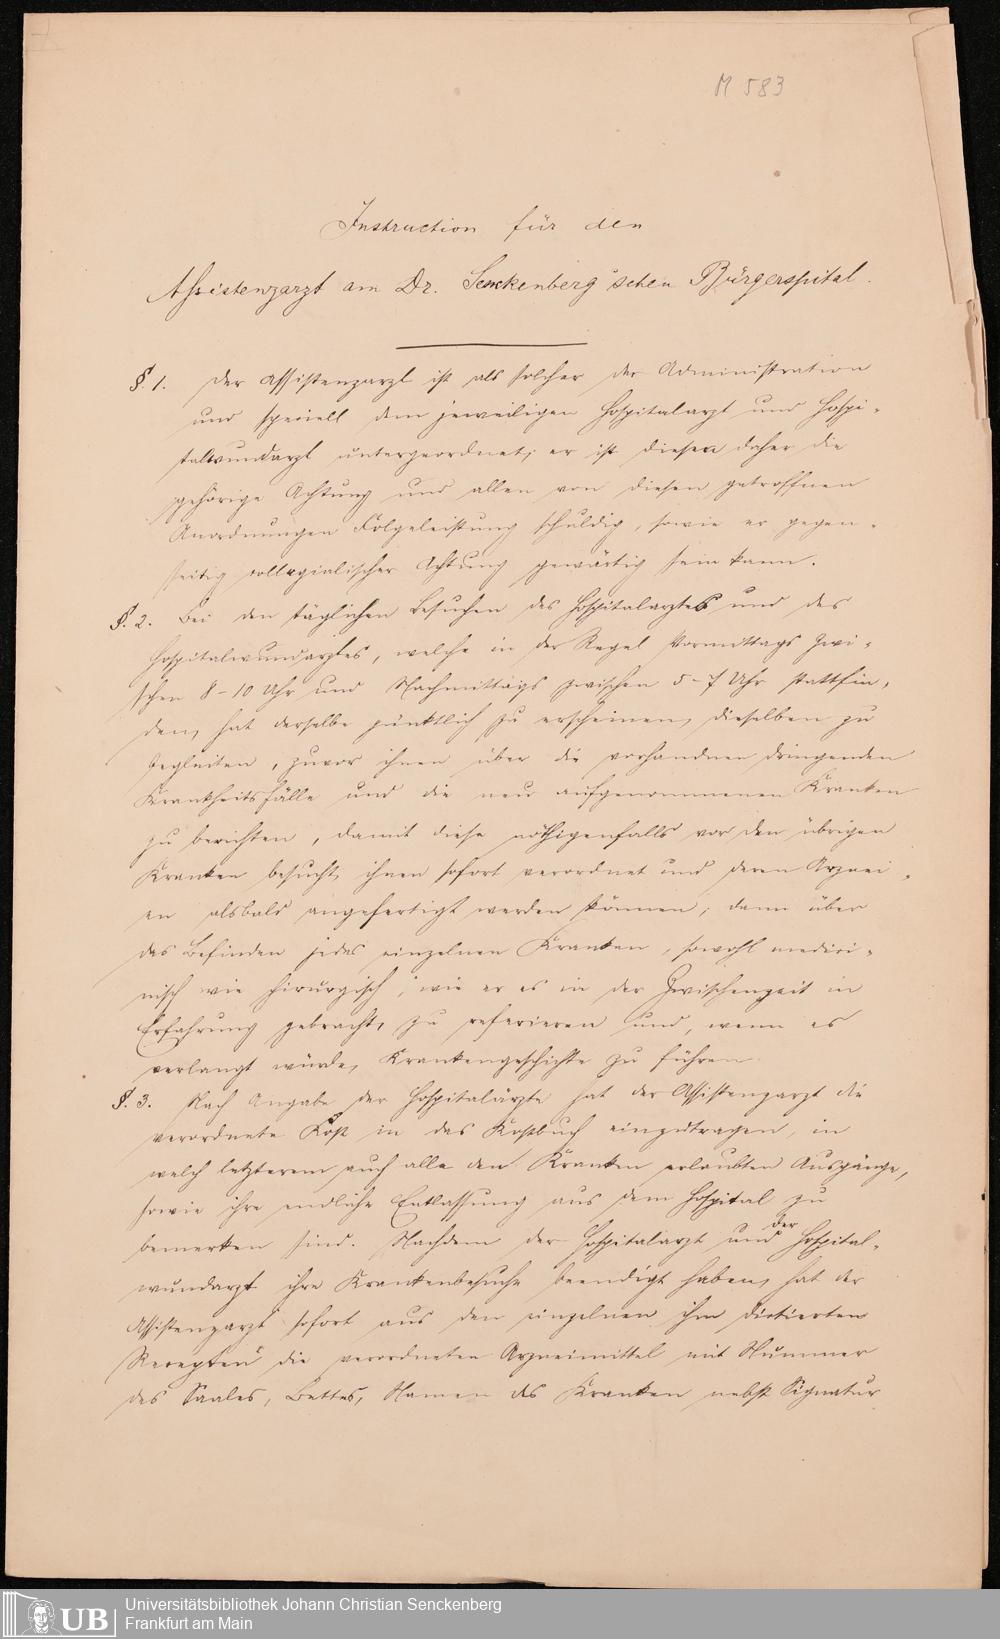 M 583
Instruction für den
Assistenzarzt am Dr. Senckenberg'schen Bürgerspital.
§. 1. Der Assistenzarzt ist als solcher der Administration
und speciell dem jeweiligen Hospitalarzt und Hospi-
talwundarzt untergeordnet; er ist diesen daher die
gehörige Achtung und allen von diesen getroffnen
Anordnungen Folgeleistung schuldig, sowie er gegen-
seitig collegialischer Achtung gewärtig sein kann.
§. 2. Bei den täglichen Besuchen des Hospitalarztes und des
Hospitalwundarztes, welche in der Regel Vormittags zwi-
schen 8-10 Uhr und Nachmittags zwischen 5-7 Uhr stattfin-
den, hat derselbe pünktlich zu erscheinen, dieselben zu
begleiten, zuvor ihnen über die vorhandnen dringenden
Krankheitsfälle und die neu aufgenommenen Kranken
zu berichten, damit diese nöthigenfalls vor den übrigen
Kranken besucht, ihnen sofort verordnet und deren Arznei-
en alsbald angefertigt werden können; dann über
das Befinden jedes einzelnen Kranken, sowohl medici-
nisch wie chirurgisch, wie er es in der Zwischenzeit in
Erfahrung gebracht, zu referieren und, wenn es
verlangt würde, Krankengeschichte zu führen
§. 3. Nach Angabe der Hospitalärzte hat der Assistenzarzt die
verordnete Kost in das Kostbuch einzutragen, in
welch letzterem auch alle den Kranken erlaubten Ausgänge,
sowie ihre endliche Entlassung aus dem Hospital zu
bemerken sind. Nachdem der Hospitalarzt und der Hospital-
wundarzt ihre Krankenbesuche beendigt haben, hat der
Assistenzarzt sofort aus den einzelnen ihm dictierten
Recepten die verordneten Arzneimittel mit Nummer
des Saales, Bettes, Namen des Kranken nebst Signatur
UB Universitätsbibliothek Johann Christian Senckenberg
Frankfurt am Main